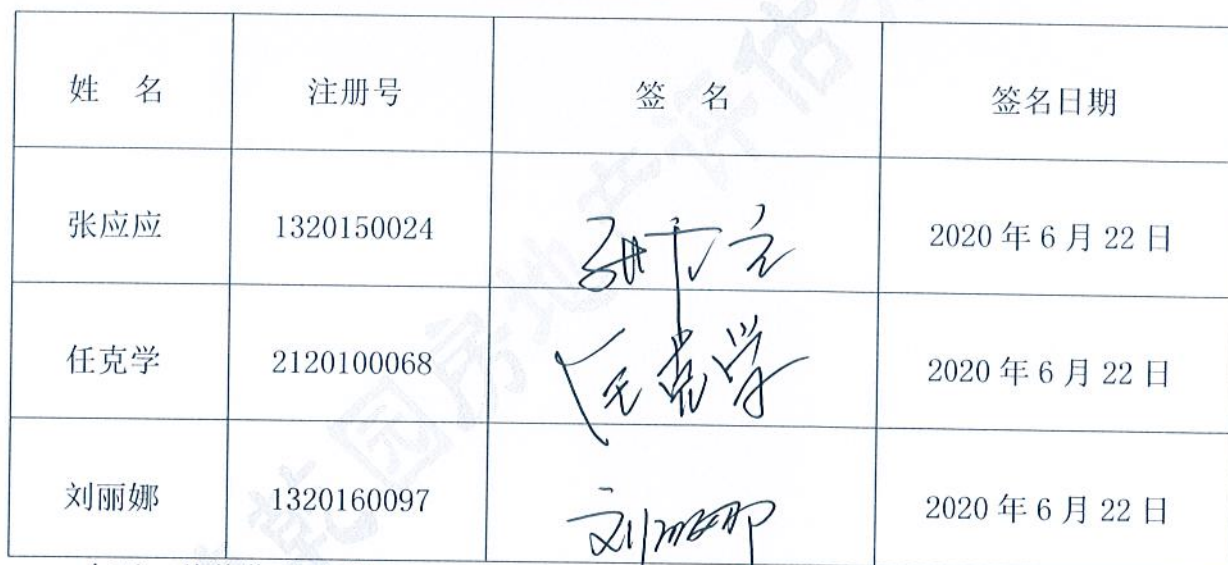 姓 名 注册号 签 名 签名日期
张应应 1320150024 2020年6月22日
任克学 2120100068 任克学 2020年6月22日
刘丽娜 1320160097 刘丽娜 2020年6月22日